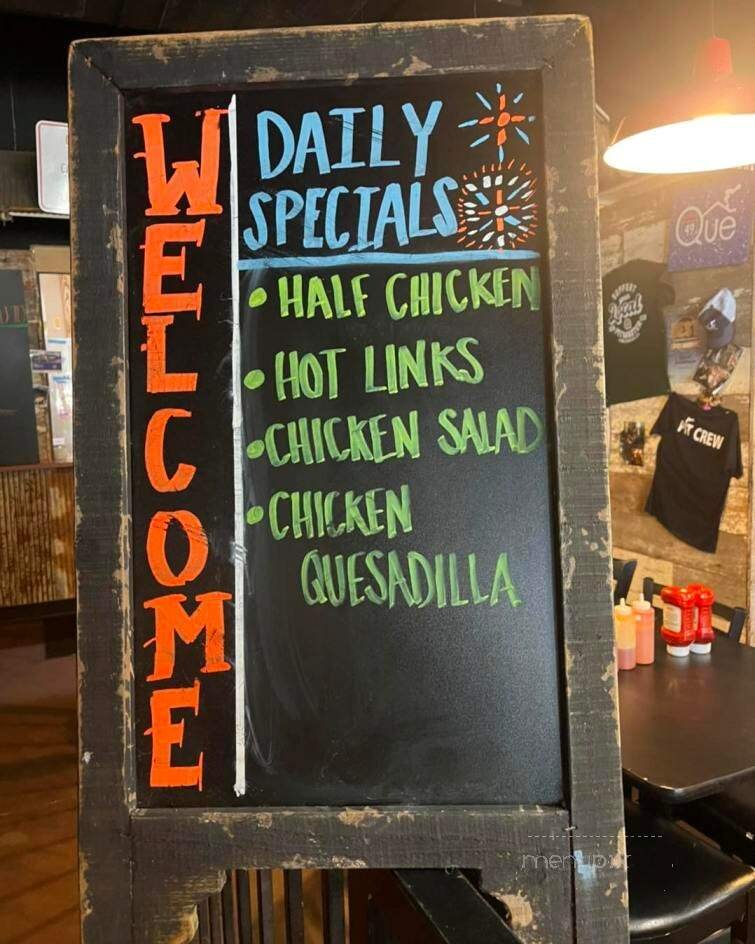 WELCOME
DAILY
SPECIALS
• HALF CHICKEN
• HOT LINKS
• CHICKEN SALAD
• CHICKEN
QUESADILLA
Que
SUPPORT
YOUR
Local
CREW
menupix